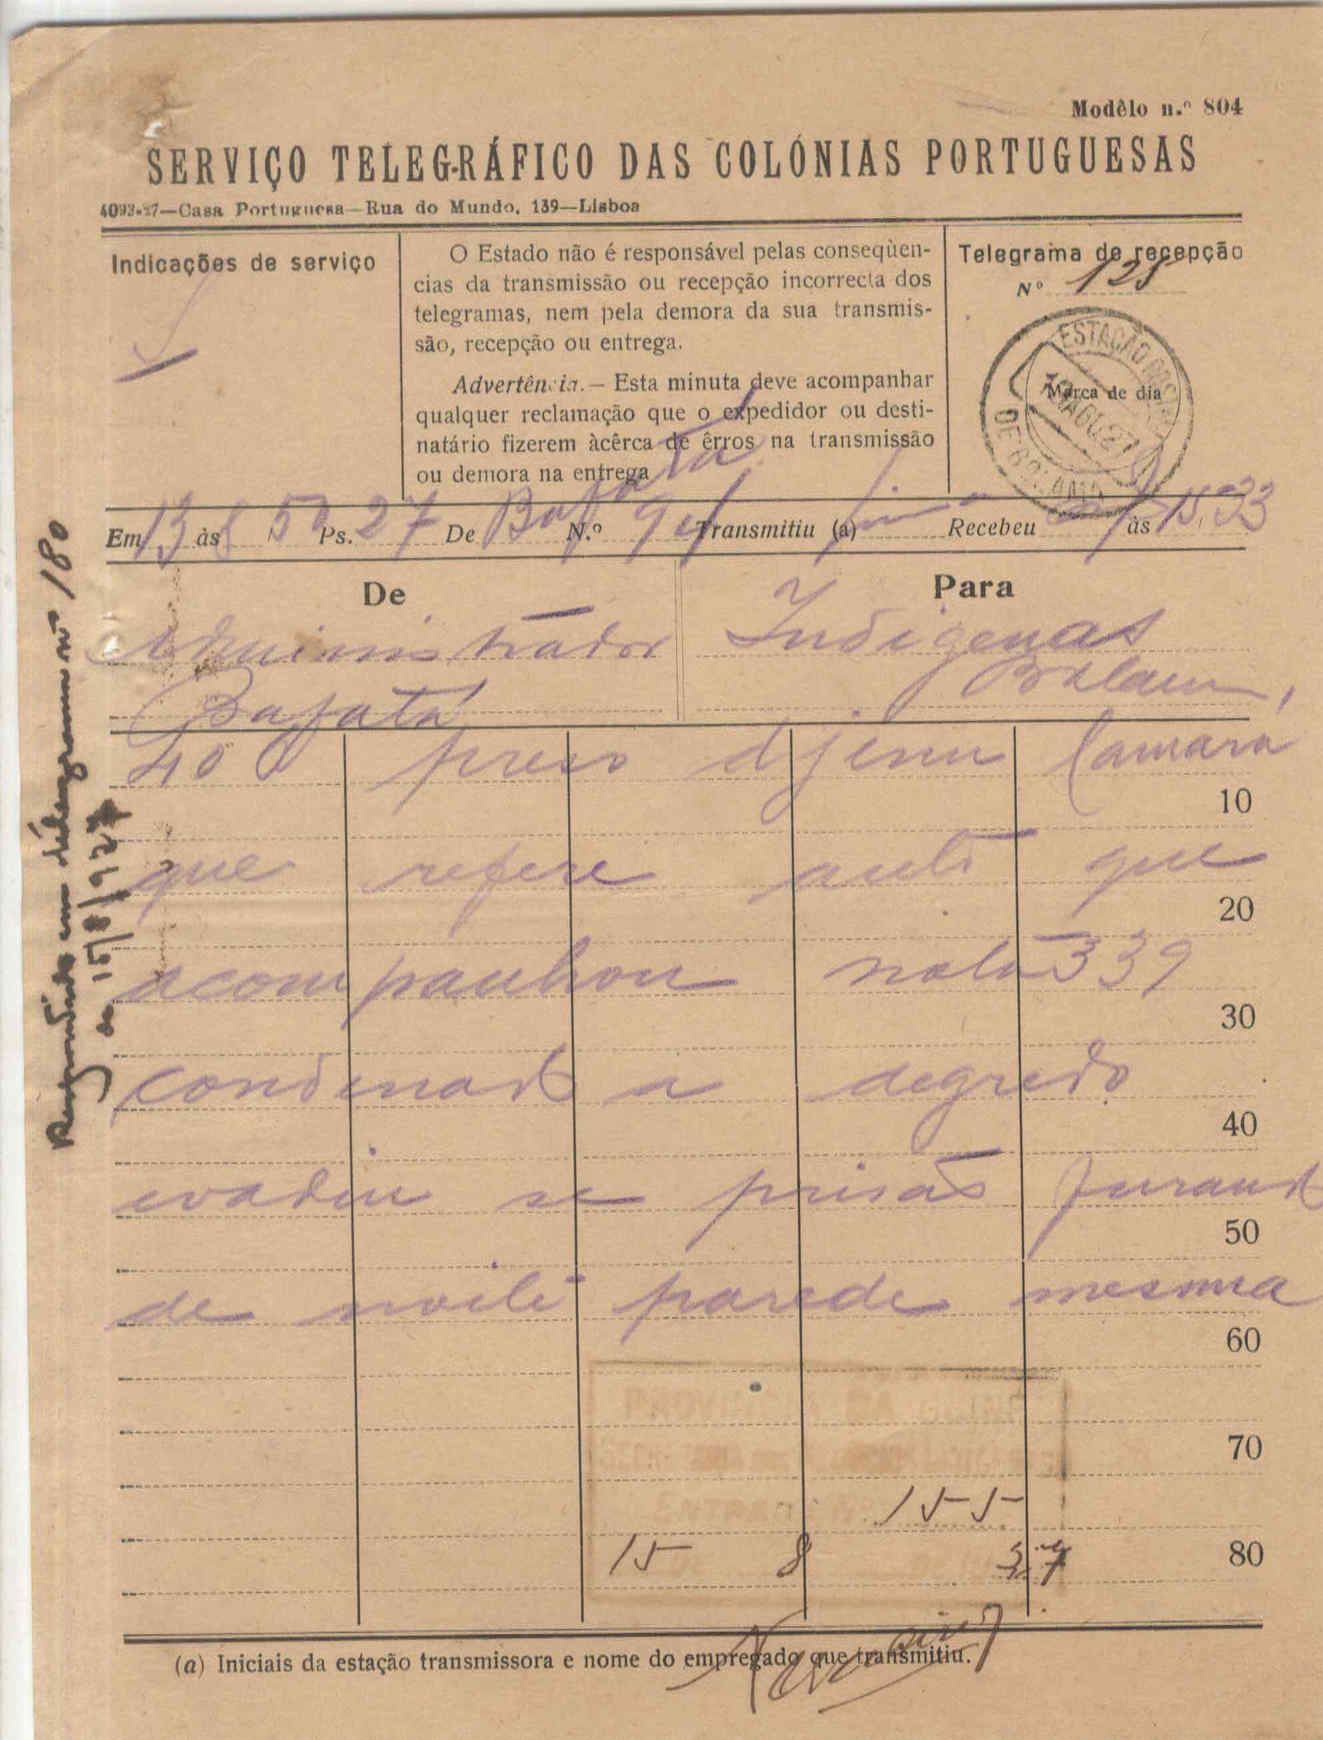 Modêlo n.º 804
SERVIÇO TELEGRÁFICO DAS COLÓNIAS PORTUGUESAS
4093-27—Casa Portuguesa—Rua do Mundo, 139—Lisboa
Indicações de serviço
O Estado não é responsável pelas conseqüen-
cias da transmissão ou recepção incorrecta dos
telegramas, nem pela demora da sua transmis-
são, recepção ou entrega.
Advertência.— Esta minuta deve acompanhar
qualquer reclamação que o expedidor ou desti-
natário fizerem àcêrca de êrros na transmissão
ou demora na entrega
Telegrama de recepção
Nº 128
ESTAÇÃO POSTAL
Marca de dia
AGO.27
DE BOLAMA
Em 13 às 8,50 Ps. 27 De Bafatá N.º Transmitiu (a) Recebeu às 15,33
De
Administrador
Bafatá
Para
Indigenas
Bolama
40 preso djenu Camará
10
que refere auto que
20
acompanhou nota 339
30
condenado a degredo
40
evadiu se prisão furando
50
de noite parede mesma
60
70
PROVINCIA DA GUINÉ
ENTRADA Nº 155
80
15 8 27
(a) Iniciais da estação transmissora e nome do empregado que transmitiu.
Respondido em telegrama nº 180
de 15/8/927